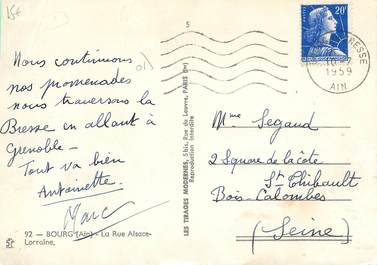 15f
Nous continuons
nos promenades
nous traversons la
Bresse en allant à
Grenoble -
Tout va bien
Antoinette.
Marc
92 — BOURG (Ain) - La Rue Alsace-
Lorraine.
5
LES TIRAGES MODERNES, 5 bis, Rue du Louvre, PARIS (IIe)
Reproduction interdite
20F
BRESSE
1959
AIN
Mme Segaud
2 Square de la côte
St Thibault
Bois-Colombes
(Seine)